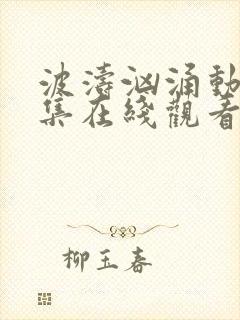 波濤洶涌動
集在綫觀看
柳玉春